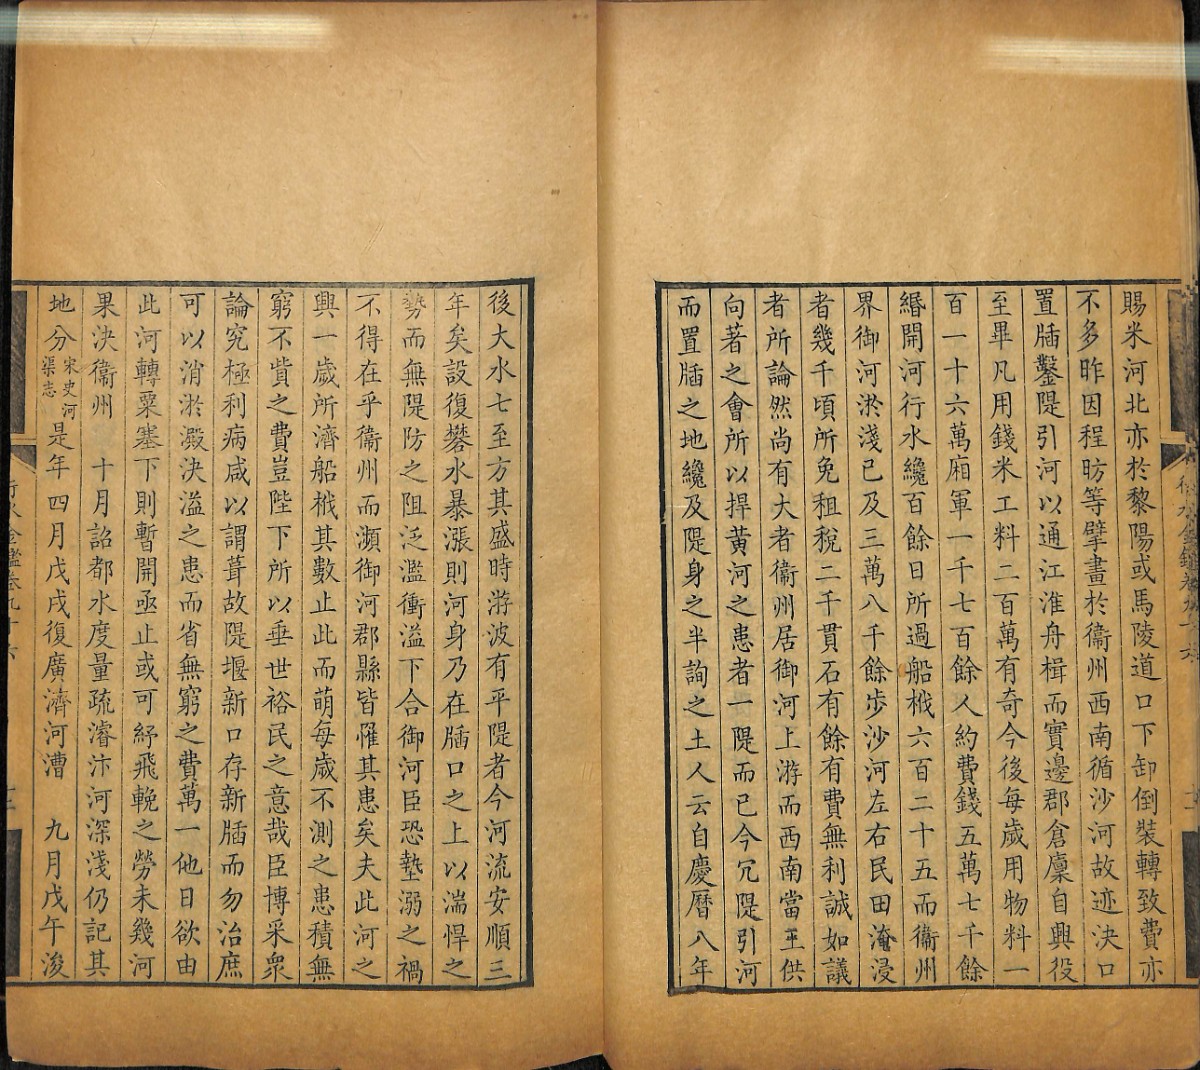 賜米河北亦於黎陽或馬陵道口下卸倒裝轉致費亦
不多昨因程昉等擘畫於衞州西南循沙河故迹決口
置牐鑿隄引河以通江淮舟楫而實邊郡倉廩自興役
至畢凡用錢米工料二百萬有奇今後每歲用物料一
百一十六萬廂軍一千七百餘人約費錢五萬七千餘
緡開河行水纔百餘日所過船栰六百二十五而衞州
界御河淤淺已及三萬八千餘步沙河左右民田淹浸
者幾千頃所免租稅二千貫石有餘有費無利誠如議
者所論然尚有大者衞州居御河上游而西南當王供
向著之會所以捍黃河之患者一隄而已今冗隄引河
而置牐之地纔及隄身之半詢之土人云自慶曆八年
後大水七至方其盛時游波有平隄者今河流安順三
年矣設復礬水暴漲則河身乃在牐口之上以湍悍之
勢而無隄防之阻泛濫衝溢下合御河臣恐墊溺之禍
不得在乎衞州而瀕御河郡縣皆罹其患矣夫此河之
興一歲所濟船栰其數止此而萌每歲不測之患積無
窮不貲之費豈陛下所以垂世裕民之意哉臣博采衆
論究極利病咸以謂葺故隄堰新口存新牐而勿治庶
可以消淤澱決溢之患而省無窮之費萬一他日欲由
此河轉粟塞下則暫開亟止或可紓飛輓之勞未幾河
果決衞州　十月詔都水度量疏濬汴河深淺仍記其
地分宋史河渠志是年四月戊戌復廣濟河漕　九月戊午浚